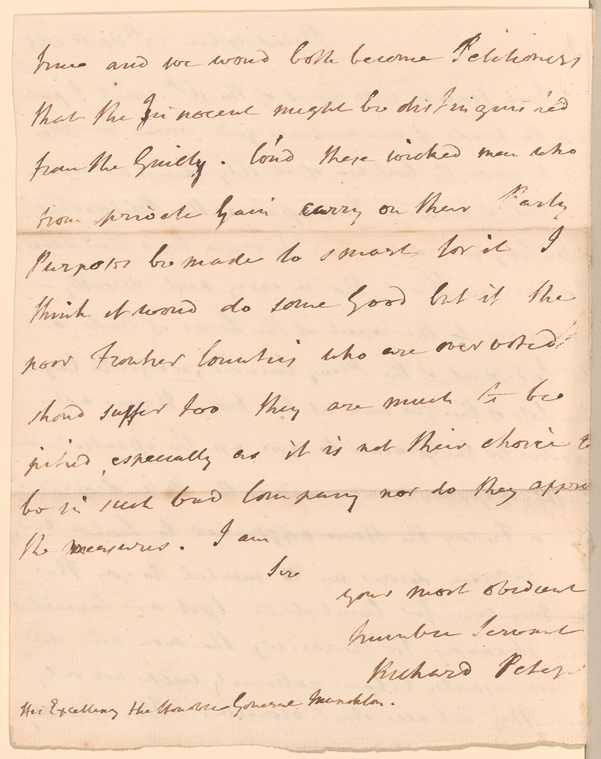 time and we woud both become Petitioners
that the Innocent might be distinguish'ed
from the Guilty. Coud these wicked men who
from private Gain carry on their Party
Purposes be made to smart for it I
think it woud do some Good but if the
poor Frontier Counties who are overvoted
shoud suffer too they are much to be
pitied, especially as it is not their choice to
be in such bad Company nor do they approve
the measures. I am
Sir
your most obedient
humble Servant
Richard Peters
His Excellency the Honoble General Monckton.